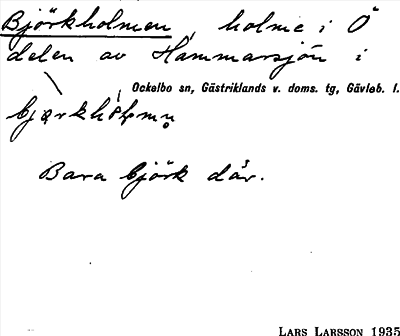 Björkholmen, holme i Ö
delen av Hammarsjön i
Ockelbo sn, Gästriklands v. doms. tg, Gävleb. l.
Bara björk där.
LARS LARSSON 1935